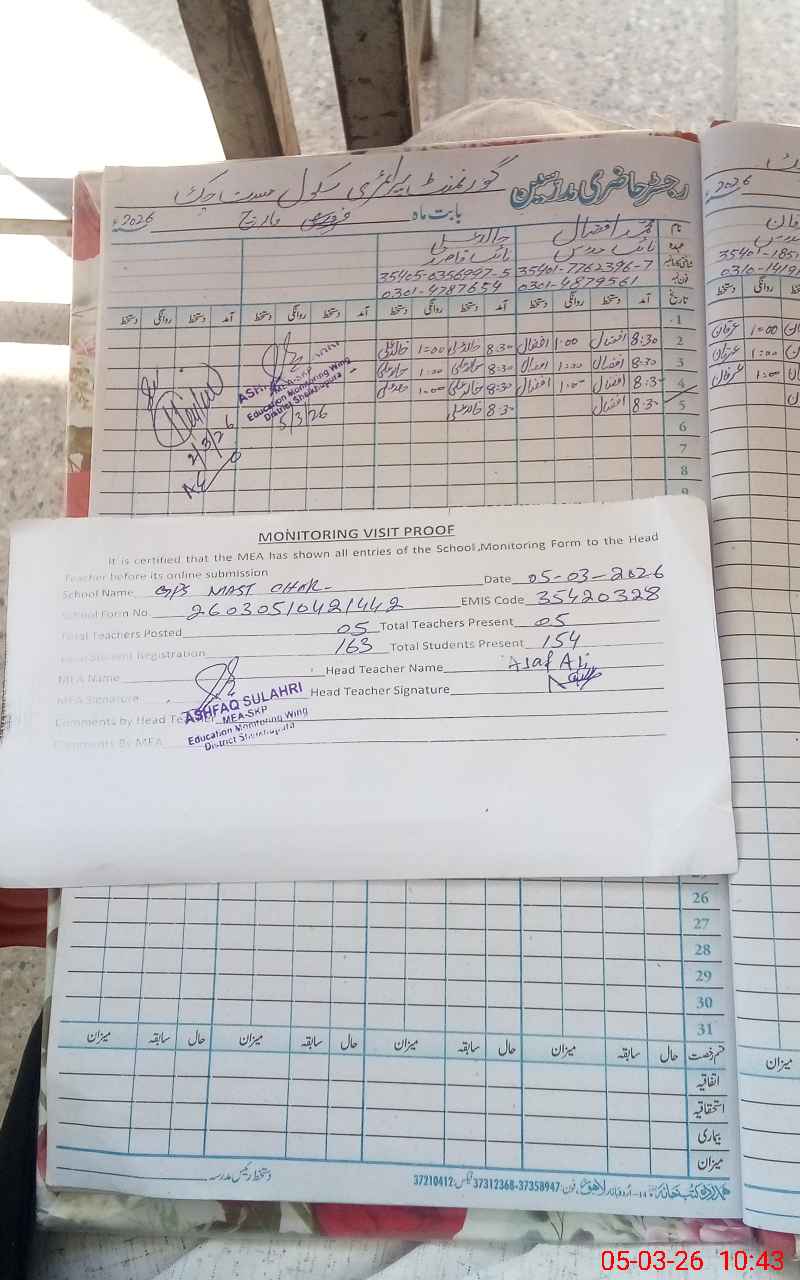 رجسٹر حاضری مدرسین گورنمنٹ پرائمری سکول مست چک
بابت ماہ فروری مارچ 2026ء
نام محمد افضال
عہدہ نائب مدرس نائب قاصد
35401-7762396-7 35405-0356997-5
0301-4879561 0301-4787654
تاریخ آمد دستخط روانگی دستخط آمد دستخط روانگی دستخط آمد دستخط روانگی دستخط آمد دستخط روانگی دستخط
1
2 8:30 افضال 1:00 افضال 8:30 1:00
3 8:30 افضال 1:00 افضال 8:30 1:00
4 8:30 افضال 1:00 افضال 8:30 1:00
5 8:30 افضال 8:30
6
7
8
9
MEA-SKP
Education Monitoring Wing
District Sheikhupura
5/3/26
2/3/26
MONITORING VISIT PROOF
It is certified that the MEA has shown all entries of the School Monitoring Form to the Head
Teacher before its online submission
School Name GPS MAST CHAK Date 05-03-2026
School Form No. 26030510421442 EMIS Code 35420328
Total Teachers Posted 05 Total Teachers Present 05
Total Student Registration 163 Total Students Present 154
MEA Name Head Teacher Name Asaf Ali
MEA Signature Head Teacher Signature
Comments by Head Teacher
Comments By MEA
ASHFAQ SULAHRI
MEA-SKP
Education Monitoring Wing
District Sheikhupura
26
27
28
29
30
31
قسم رخصت حال سابقہ میزان حال سابقہ میزان حال سابقہ میزان حال سابقہ میزان
اتفاقیہ
استحقاقیہ
بیماری
میزان
دستخط رئیس مدرسہ
فون: 37358947-37312368 فیکس: 37210412
2026ء
0310-1419
دستخط روانگی
عرفان 1:00
عرفان 1:00
عرفان 1:00
میزان
05-03-26 10:43